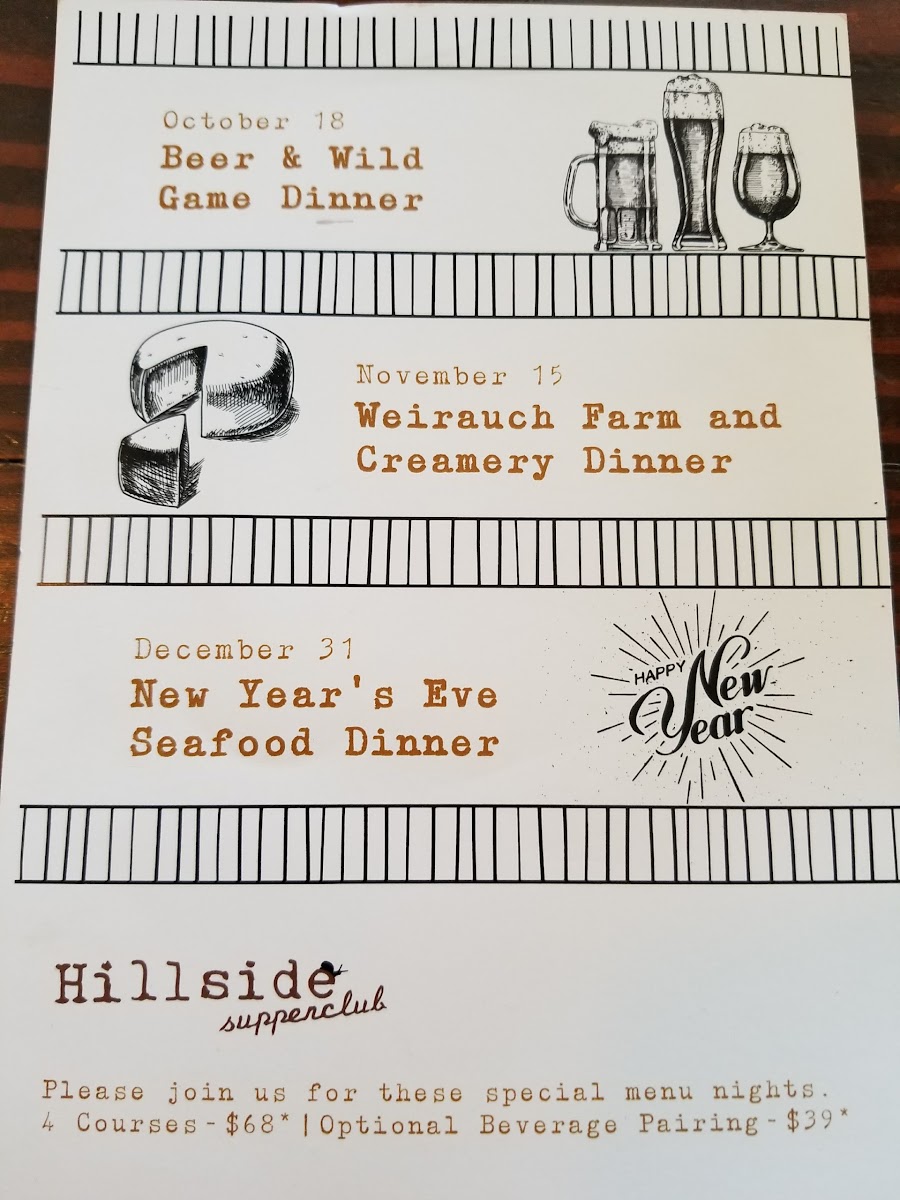 October 18
Beer & Wild
Game Dinner
November 15
Weirauch Farm and
Creamery Dinner
December 31
New Year's Eve
Seafood Dinner
HAPPY New
Year
Hillside
supperclub
Please join us for these special menu nights.
4 Courses - $68* | Optional Beverage Pairing - $39*